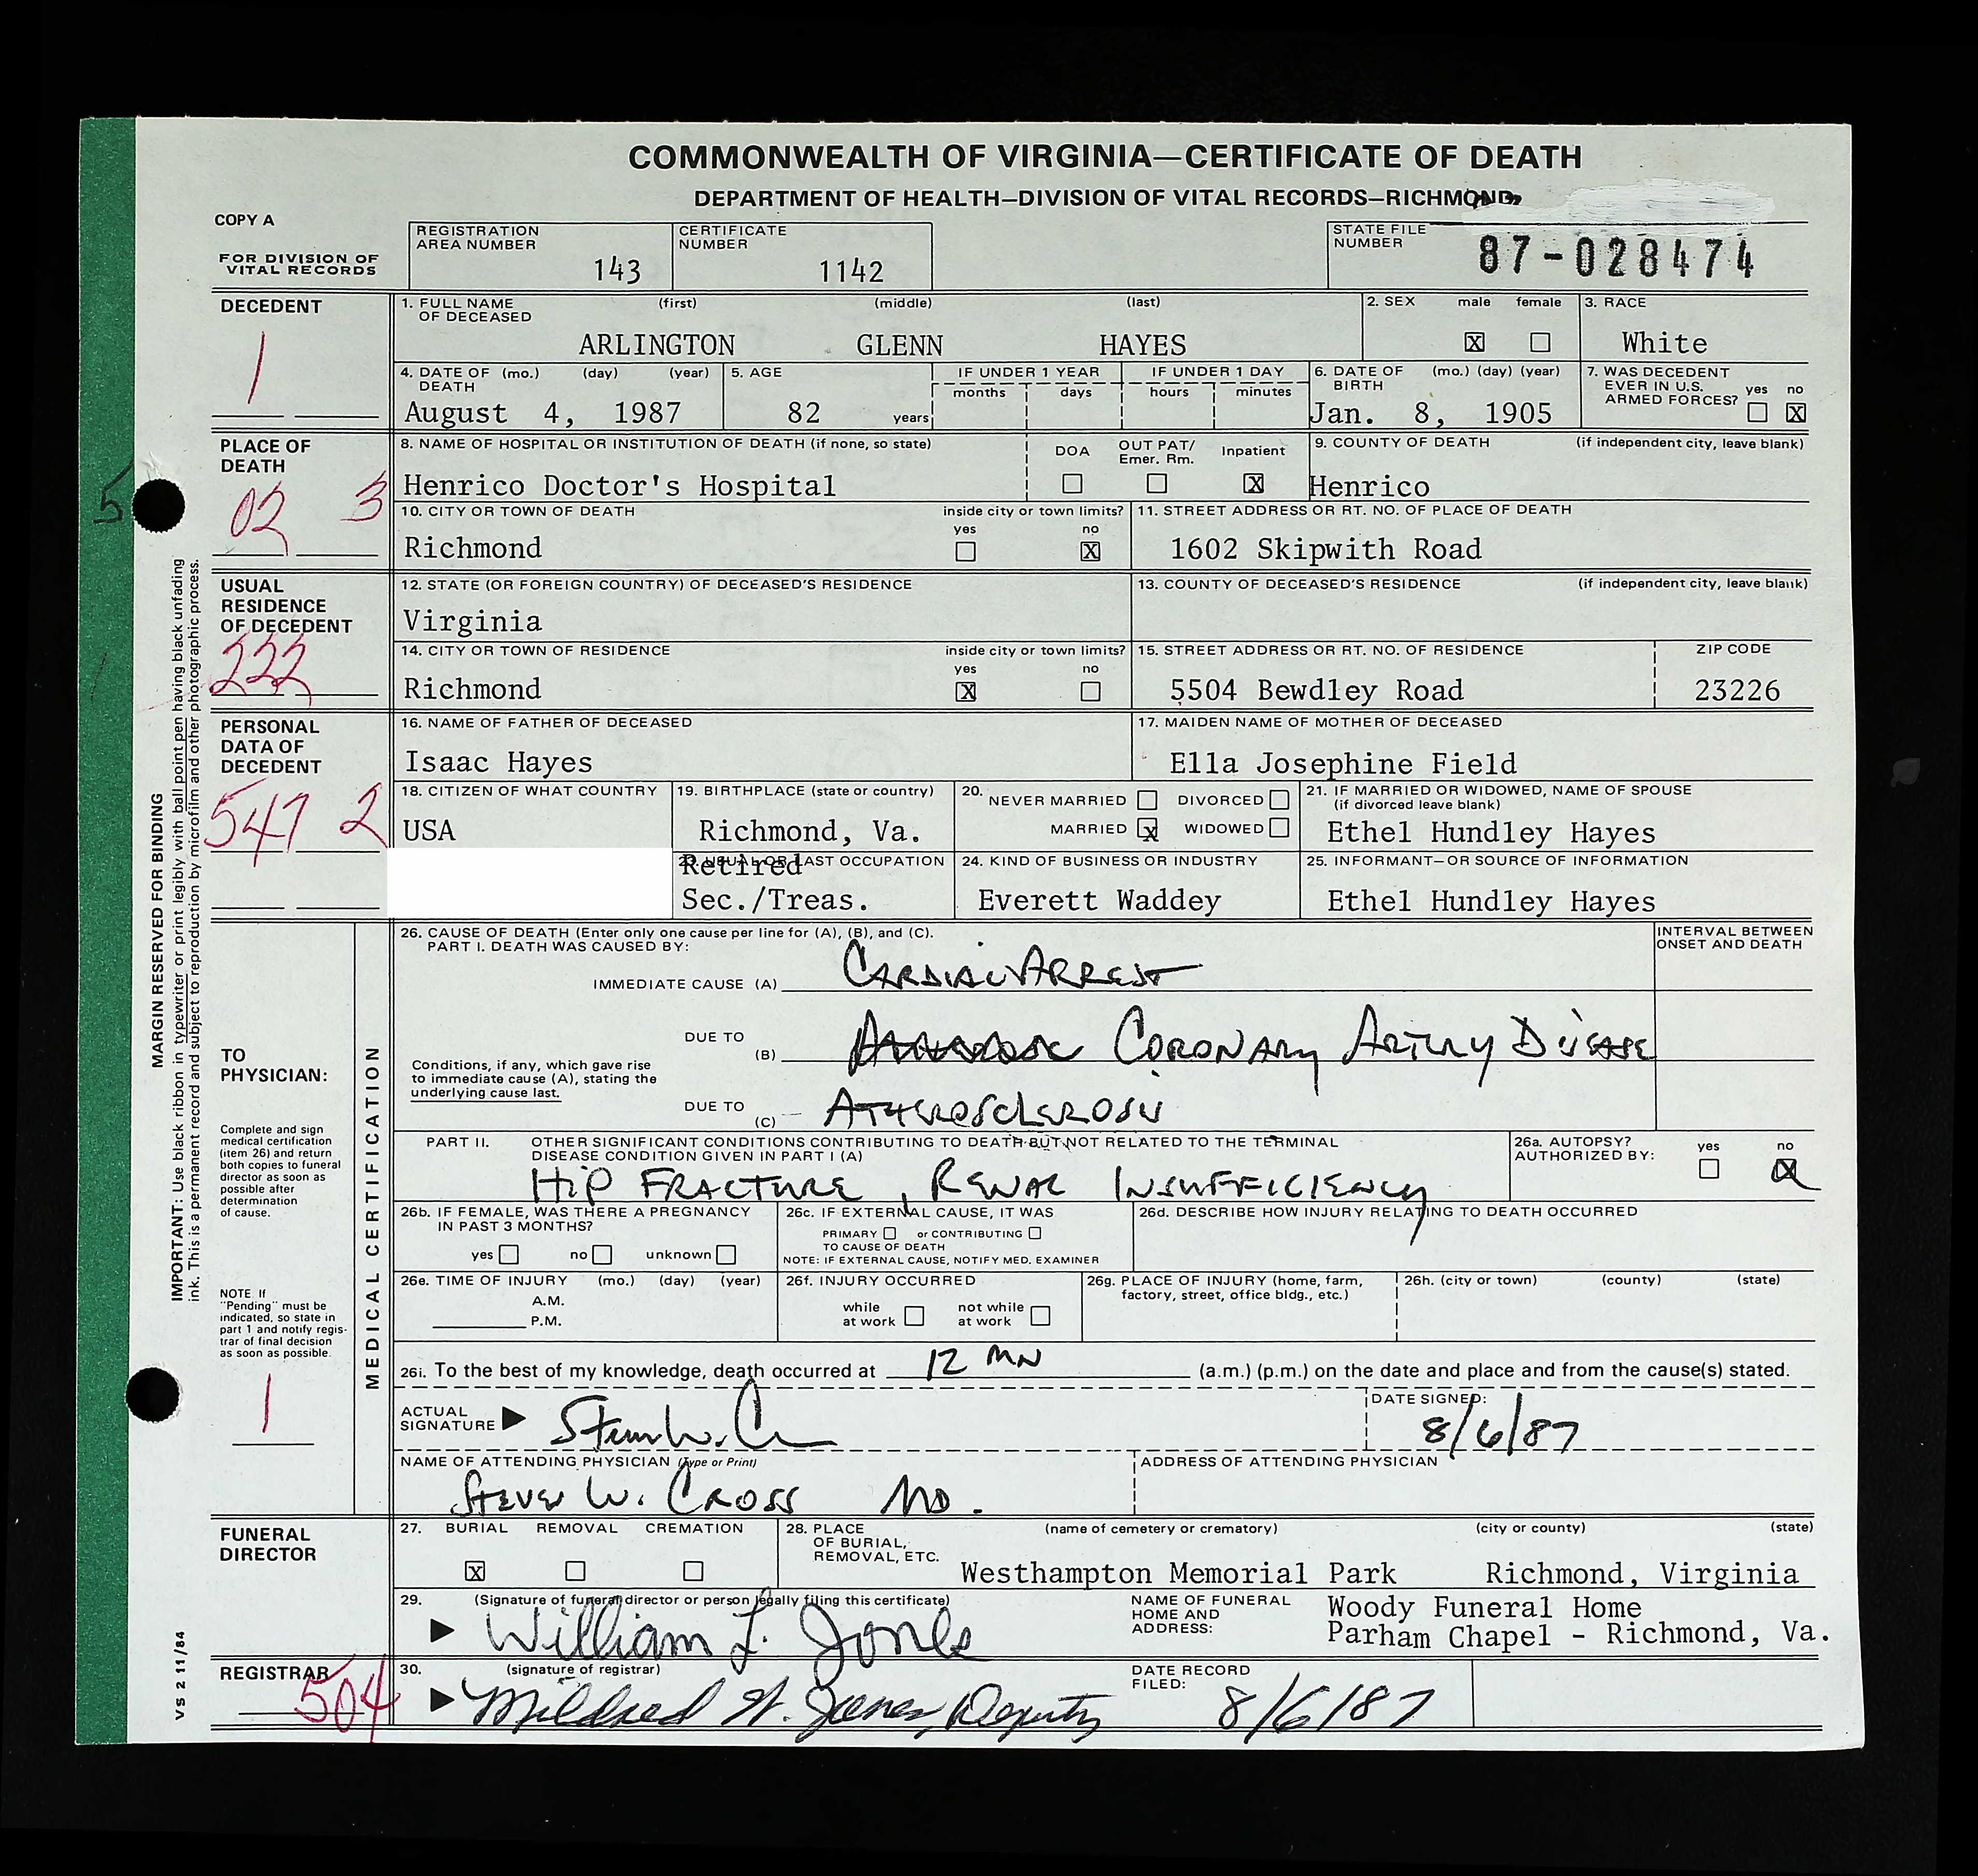 COMMONWEALTH OF VIRGINIA—CERTIFICATE OF DEATH
DEPARTMENT OF HEALTH—DIVISION OF VITAL RECORDS—RICHMOND
COPY A
FOR DIVISION OF VITAL RECORDS
REGISTRATION AREA NUMBER 143
CERTIFICATE NUMBER 1142
STATE FILE NUMBER 87-028474
DECEDENT
1
1. FULL NAME OF DECEASED (first) (middle) (last)
ARLINGTON GLENN HAYES
2. SEX male female
X
3. RACE
White
4. DATE OF DEATH (mo.) (day) (year)
August 4, 1987
5. AGE
82 years
IF UNDER 1 YEAR months days
IF UNDER 1 DAY hours minutes
6. DATE OF BIRTH (mo.) (day) (year)
Jan. 8, 1905
7. WAS DECEDENT EVER IN U.S. ARMED FORCES? yes no
X
PLACE OF DEATH
02 3
5
8. NAME OF HOSPITAL OR INSTITUTION OF DEATH (if none, so state)
Henrico Doctor's Hospital
DOA OUT PAT/ Emer. Rm. Inpatient
X
9. COUNTY OF DEATH (if independent city, leave blank)
Henrico
10. CITY OR TOWN OF DEATH
Richmond
inside city or town limits? yes no
X
11. STREET ADDRESS OR RT. NO. OF PLACE OF DEATH
1602 Skipwith Road
USUAL RESIDENCE OF DECEDENT
222
12. STATE (OR FOREIGN COUNTRY) OF DECEASED'S RESIDENCE
Virginia
13. COUNTY OF DECEASED'S RESIDENCE (if independent city, leave blank)
14. CITY OR TOWN OF RESIDENCE
Richmond
inside city or town limits? yes no
X
15. STREET ADDRESS OR RT. NO. OF RESIDENCE
5504 Bewdley Road
ZIP CODE
23226
PERSONAL DATA OF DECEDENT
547 2
16. NAME OF FATHER OF DECEASED
Isaac Hayes
17. MAIDEN NAME OF MOTHER OF DECEASED
Ella Josephine Field
18. CITIZEN OF WHAT COUNTRY
USA
19. BIRTHPLACE (state or country)
Richmond, Va.
20. NEVER MARRIED DIVORCED
MARRIED X WIDOWED
21. IF MARRIED OR WIDOWED, NAME OF SPOUSE (if divorced leave blank)
Ethel Hundley Hayes
23. USUAL OR LAST OCCUPATION
Retired
Sec./Treas.
24. KIND OF BUSINESS OR INDUSTRY
Everett Waddey
25. INFORMANT—OR SOURCE OF INFORMATION
Ethel Hundley Hayes
MARGIN RESERVED FOR BINDING
IMPORTANT: Use black ribbon in typewriter or print legibly with ball point pen having black unfading
ink. This is a permanent record and subject to reproduction by microfilm and other photographic process.
VS 2 11/84
TO PHYSICIAN:
Complete and sign medical certification (item 26) and return both copies to funeral director as soon as possible after determination of cause.
NOTE. If "Pending" must be indicated, so state in part 1 and notify registrar of final decision as soon as possible.
1
MEDICAL CERTIFICATION
26. CAUSE OF DEATH (Enter only one cause per line for (A), (B), and (C).
PART I. DEATH WAS CAUSED BY:
INTERVAL BETWEEN ONSET AND DEATH
IMMEDIATE CAUSE (A) CARDIAC ARREST
DUE TO (B) CORONARY ARTERY DISEASE
Conditions, if any, which gave rise to immediate cause (A), stating the underlying cause last.
DUE TO (C) ATHEROSCLEROSIS
PART II. OTHER SIGNIFICANT CONDITIONS CONTRIBUTING TO DEATH BUT NOT RELATED TO THE TERMINAL DISEASE CONDITION GIVEN IN PART I (A)
HIP FRACTURE, RENAL INSUFFICIENCY
26a. AUTOPSY? AUTHORIZED BY: yes no
X
26b. IF FEMALE, WAS THERE A PREGNANCY IN PAST 3 MONTHS?
yes no unknown
26c. IF EXTERNAL CAUSE, IT WAS
PRIMARY or CONTRIBUTING
TO CAUSE OF DEATH
NOTE: IF EXTERNAL CAUSE, NOTIFY MED. EXAMINER
26d. DESCRIBE HOW INJURY RELATING TO DEATH OCCURRED
26e. TIME OF INJURY (mo.) (day) (year)
A.M.
P.M.
26f. INJURY OCCURRED
while at work not while at work
26g. PLACE OF INJURY (home, farm, factory, street, office bldg., etc.)
26h. (city or town) (county) (state)
26i. To the best of my knowledge, death occurred at 12 MN (a.m.) (p.m.) on the date and place and from the cause(s) stated.
ACTUAL SIGNATURE Steven W. C
DATE SIGNED: 8/6/87
NAME OF ATTENDING PHYSICIAN (Type or Print)
STEVEN W. CROSS MD.
ADDRESS OF ATTENDING PHYSICIAN
FUNERAL DIRECTOR
27. BURIAL REMOVAL CREMATION
X
28. PLACE OF BURIAL, REMOVAL, ETC. (name of cemetery or crematory) (city or county) (state)
Westhampton Memorial Park Richmond, Virginia
29. (Signature of funeral director or person legally filing this certificate)
William L. Jones
NAME OF FUNERAL HOME AND ADDRESS:
Woody Funeral Home
Parham Chapel - Richmond, Va.
REGISTRAR
504
30. (signature of registrar)
Mildred W. Jones, Deputy
DATE RECORD FILED: 8/6/87